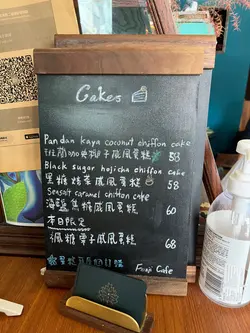 Cakes
Pandan kaya coconut chiffon cake
班蘭咖央椰子戚風蛋糕 58
Black sugar hojicha chiffon cake
黑糖焙茶戚風蛋糕 58
Seasalt caramel chiffon cake
海鹽焦糖戚風蛋糕 60
本日限定
楓糖栗子戚風蛋糕 68
Fuuji Cafe